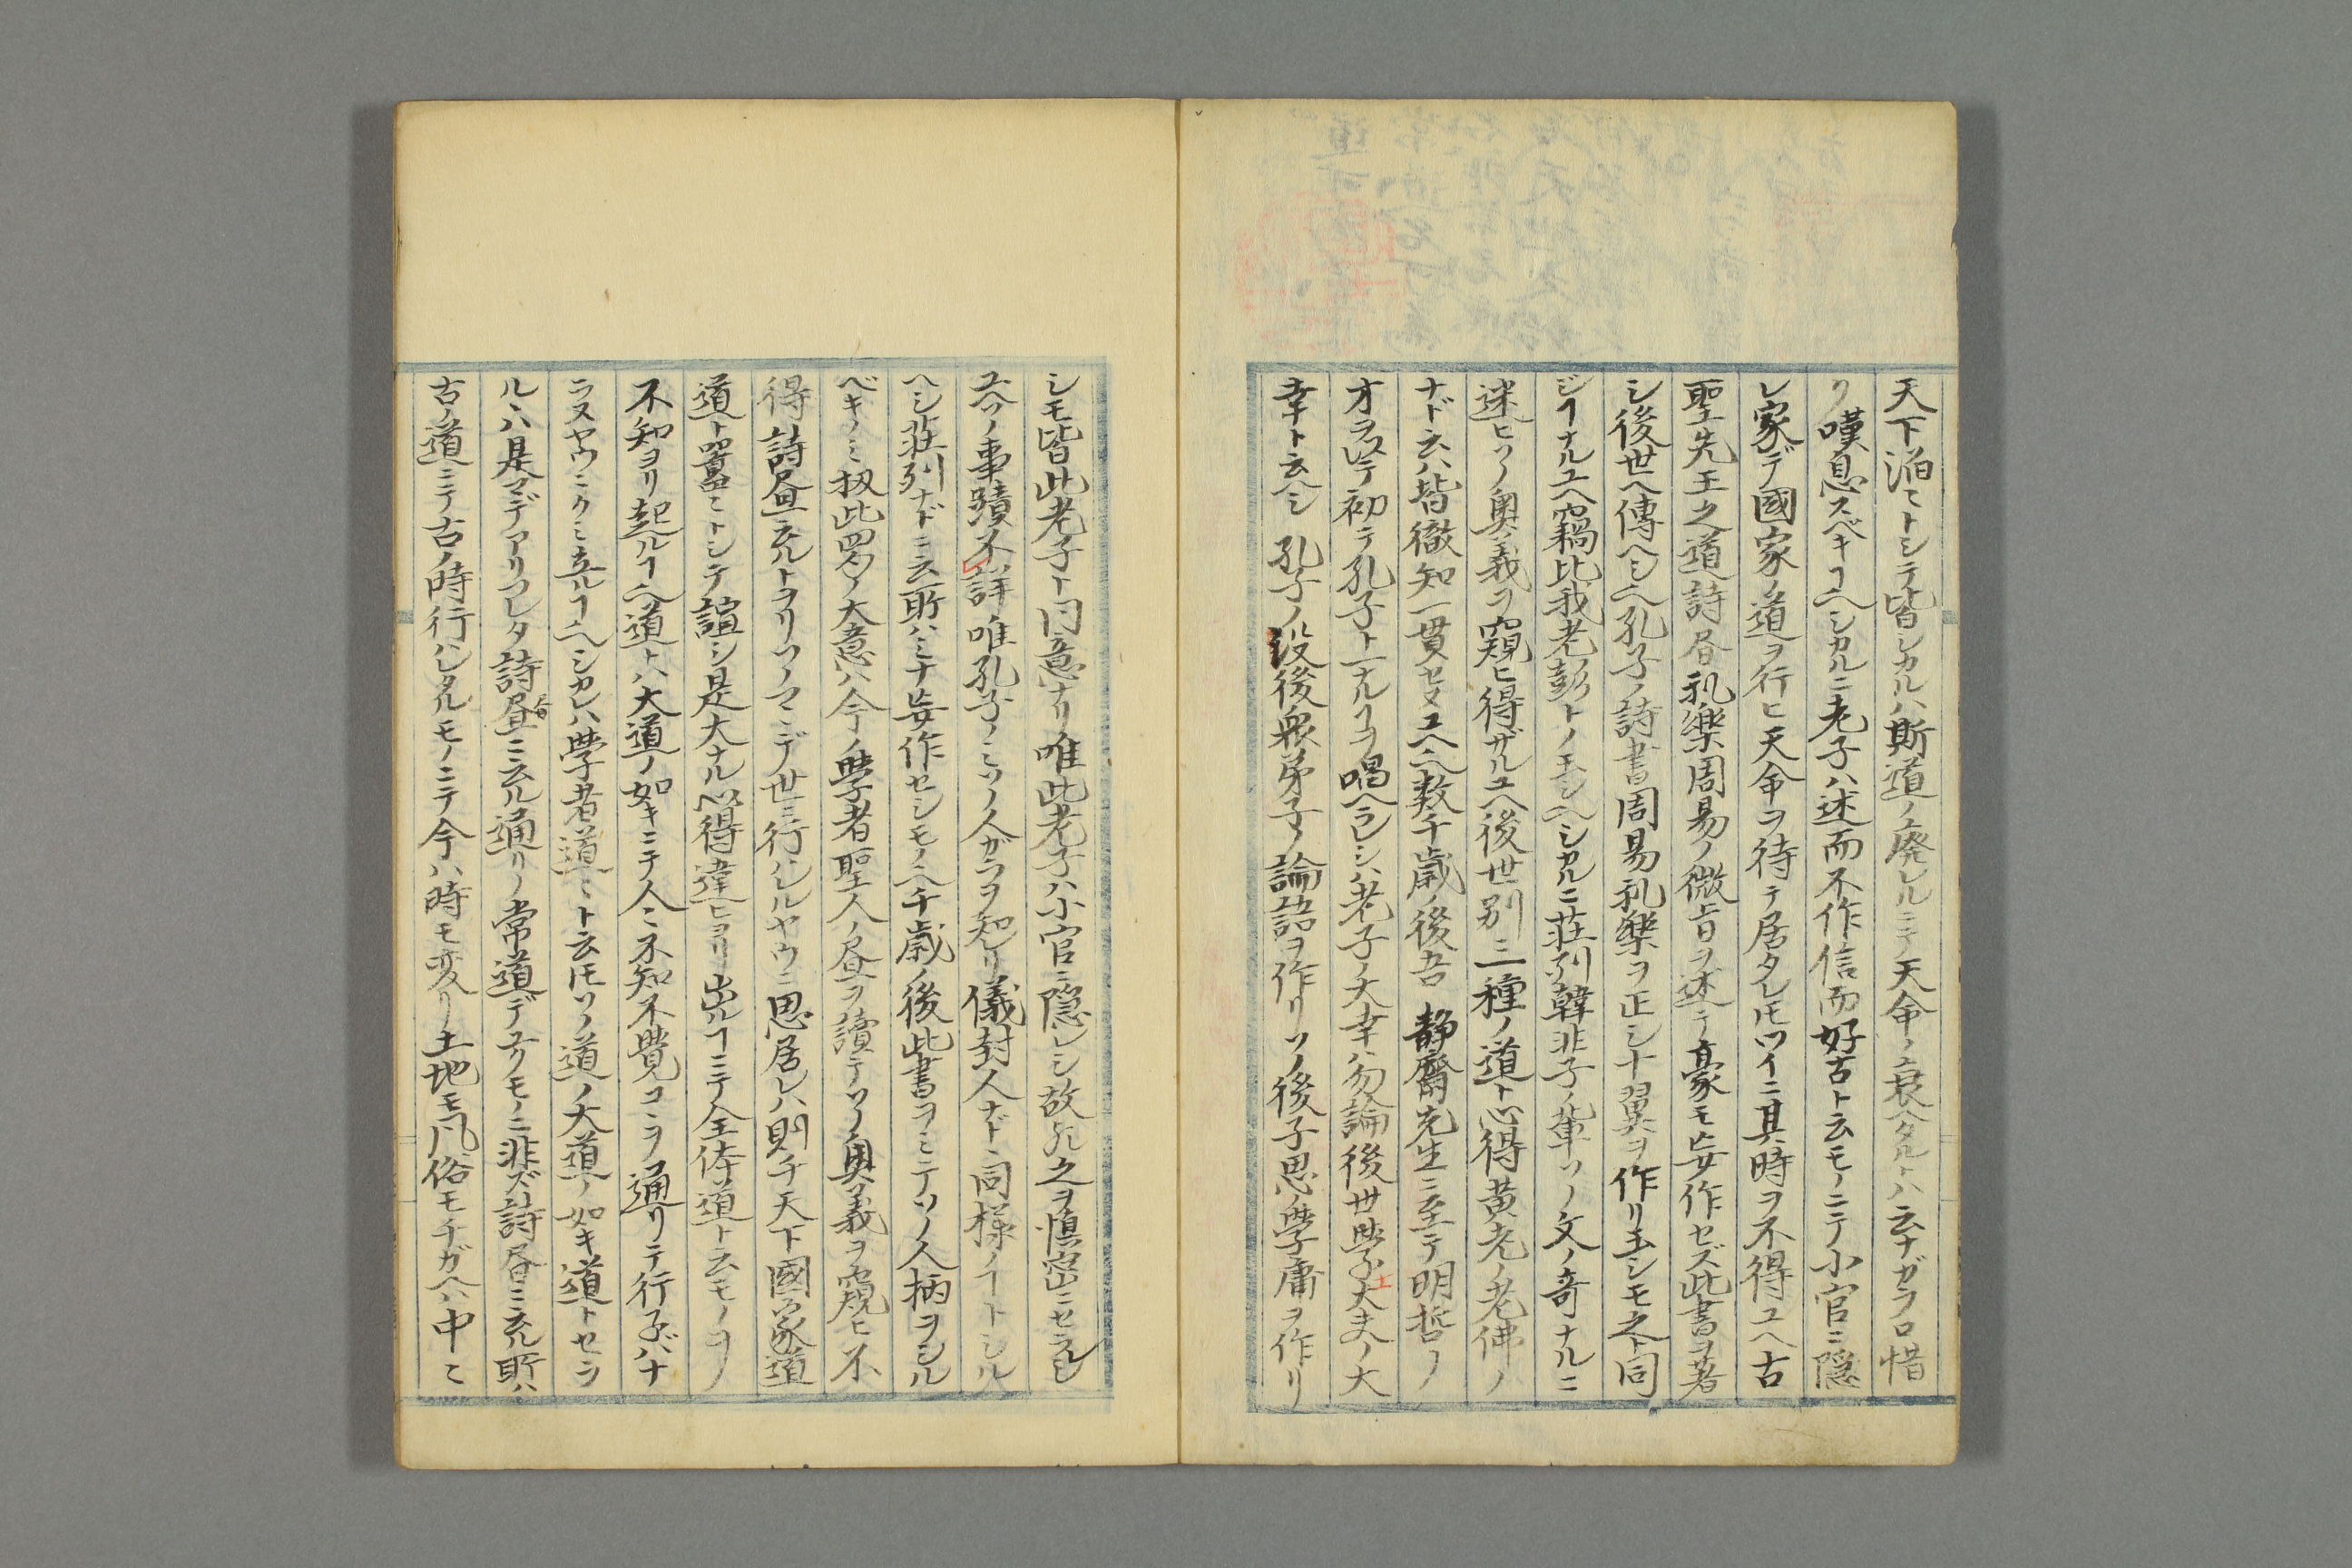 天下滔〻トシテ皆シカルハ斯道ノ廃レルニテ天命ノ衰ヘタルトハ云ナガラ口惜
ク嘆息スベキヿ也シカルニ老子ハ述而不作信而好古ト云モノニテ小官ニ隠
レ家デ國家ノ道ヲ行ヒ天命ヲ待テ居タレ𪜈ツイニ其時ヲ不得ユヘ古
聖先王之道詩昼礼樂周易ノ微旨ヲ述テ豪モ妄作セズ此書ヲ著
シ後世ヘ傳ヘシ也孔子ノ詩書周易礼樂ヲ正シ十翼ヲ作リ玉シモ之ト同
ジヿナルユヘ竊比我老彭トノ玉シ也シカルニ荘列韓非子ノ軰ソノ文ノ奇ナルニ
迷ヒソノ奥義ヲ窺ヒ得ザルユヘ後世別ニ一種ノ道ト心得黄老ノ老佛ノ
ナド云ハ皆徹知一貫セヌユヘ也数千歳ノ後吾 静齋先生ニ至テ明哲ノ
オヲ以テ初テ孔子ト一ナルヿヲ唱ヘラレシハ老子ノ大幸ハ勿論後世学士大夫ノ大
幸ト云ヘシ 孔子ノ没後衆弟子ノ論語ヲ作リソノ後子思ノ学庸ヲ作リ
シモ皆此老子ト同意ナリ唯此老子ハ小官ニ隠レシ故凡之ヲ慎密ニセラレシ
ユヘソノ事蹟不詳唯孔子ノミソノ人ガラヲ知レリ儀封人ナド同様ノヿトシル
ヘシ荘列ナドニ云所ハミナ妄作セシモノ也千歳ノ後此書ヲミテソノ人柄ヲシル
ベキノミ扨此四句ノ大意ハ今ノ学者聖人ノ昼ヲ讀テソノ奥義ヲ窺ヒ不
得詩昼ニ云ルトヲリソノマヽデ世ニ行ハレルヤウニ思居レハ則チ天下國家道
道ト嚣〻トシテ諠シ是大ナル心得違ヒヨリ出ルヿニテ全体道ト云モノヲ
不知ヨリ起ルヿ也道トハ大道ノ如キニテ人〻不知不覺コヽヲ通リテ行子バナ
ラヌヤウニクミ立ルヿ也シカレハ学者道〻ト云𪜈ソノ道ノ大道ノ如キ道トセラ
ルヽハ是マデアリフレタ詩昼ニ云ル通リノ常道デユクモノニ非ズ詩昼ニ云ル所ハ
古ノ道ニテ古ノ時行ハレタルモノニテ今ハ時モ変リ土地モ凡俗モチガヘハ中〻